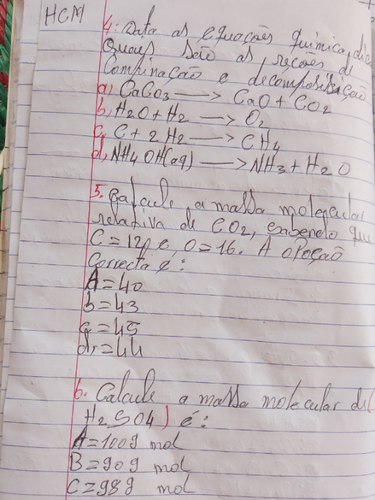 HCM
4. Data as equações químicas, dic
Quais são as reções de
Combinação e decomposição
a) CaCO3 → CaO + CO2
b, H2O + H2 → O2
c, C + 2H2 → CH4
d, NH4OH(aq) → NH3 + H2O
5. Calcule a massa molecular
relativa de CO2, sabendo que
C = 12, e, O = 16. A opoção
Correcta é:
A = 40
b = 43
c = 45
d, = 44
6. Calcule a massa molecular de(
H2SO4) é:
A = 100g mol
B = 90g mol
C = 98g mol